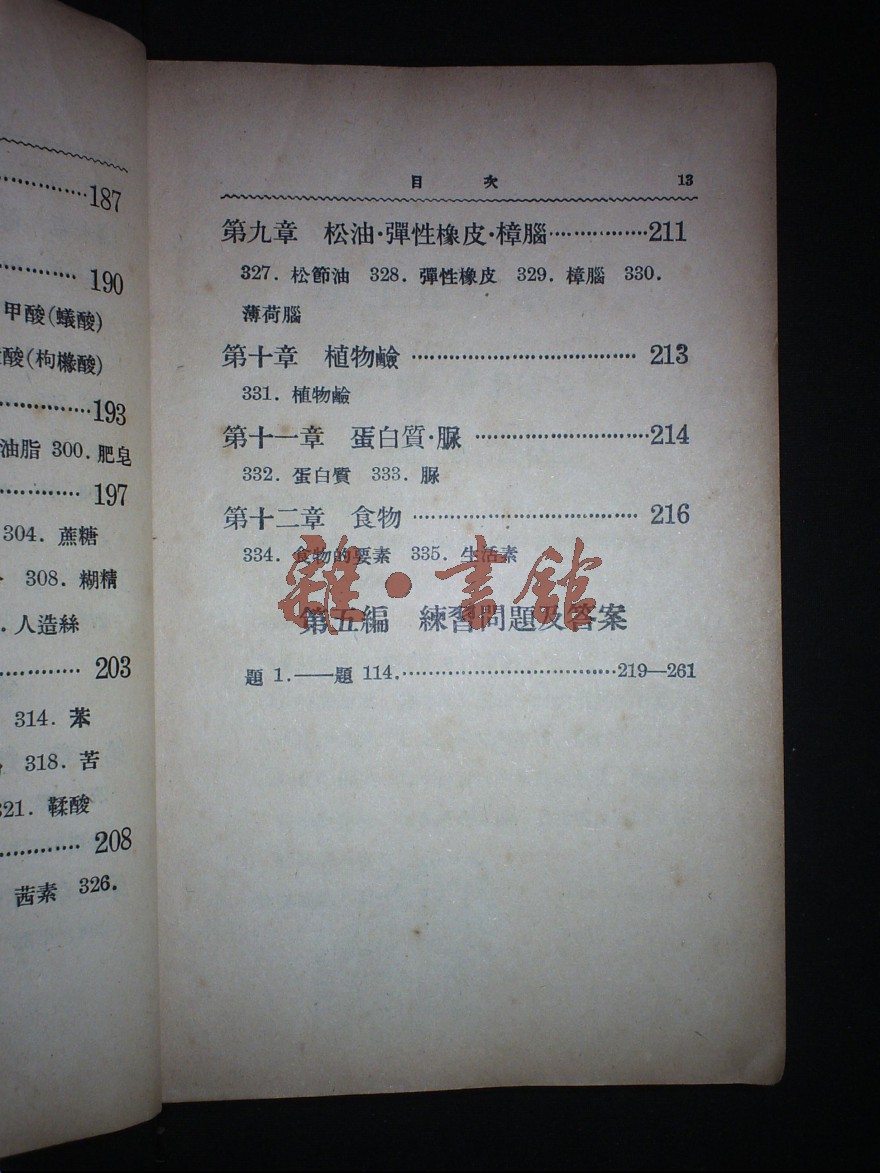 187
190
甲酸(蟻酸)
酸(枸櫞酸)
193
油脂 300. 肥皂
197
304. 蔗糖
308. 糊精
. 人造絲
203
314. 苯
318. 苦
321. 鞣酸
208
茜素 326.
目 次 13
第九章 松油·彈性橡皮·樟腦················211
327. 松節油 328. 彈性橡皮 329. 樟腦 330.
薄荷腦
第十章 植物鹼 ································· 213
331. 植物鹼
第十一章 蛋白質·脲 ··························214
332. 蛋白質 333. 脲
第十二章 食物 ································· 216
334. 食物的要素 335. 生活素
雜·書館
第五編 練習問題及答案
題 1.——題 114.································219—261